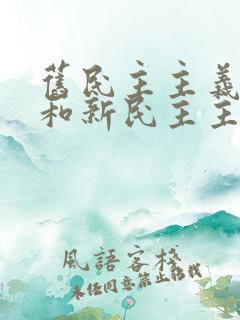 舊民主主義
和新民主主
風語客棧
未經同意禁止轉載